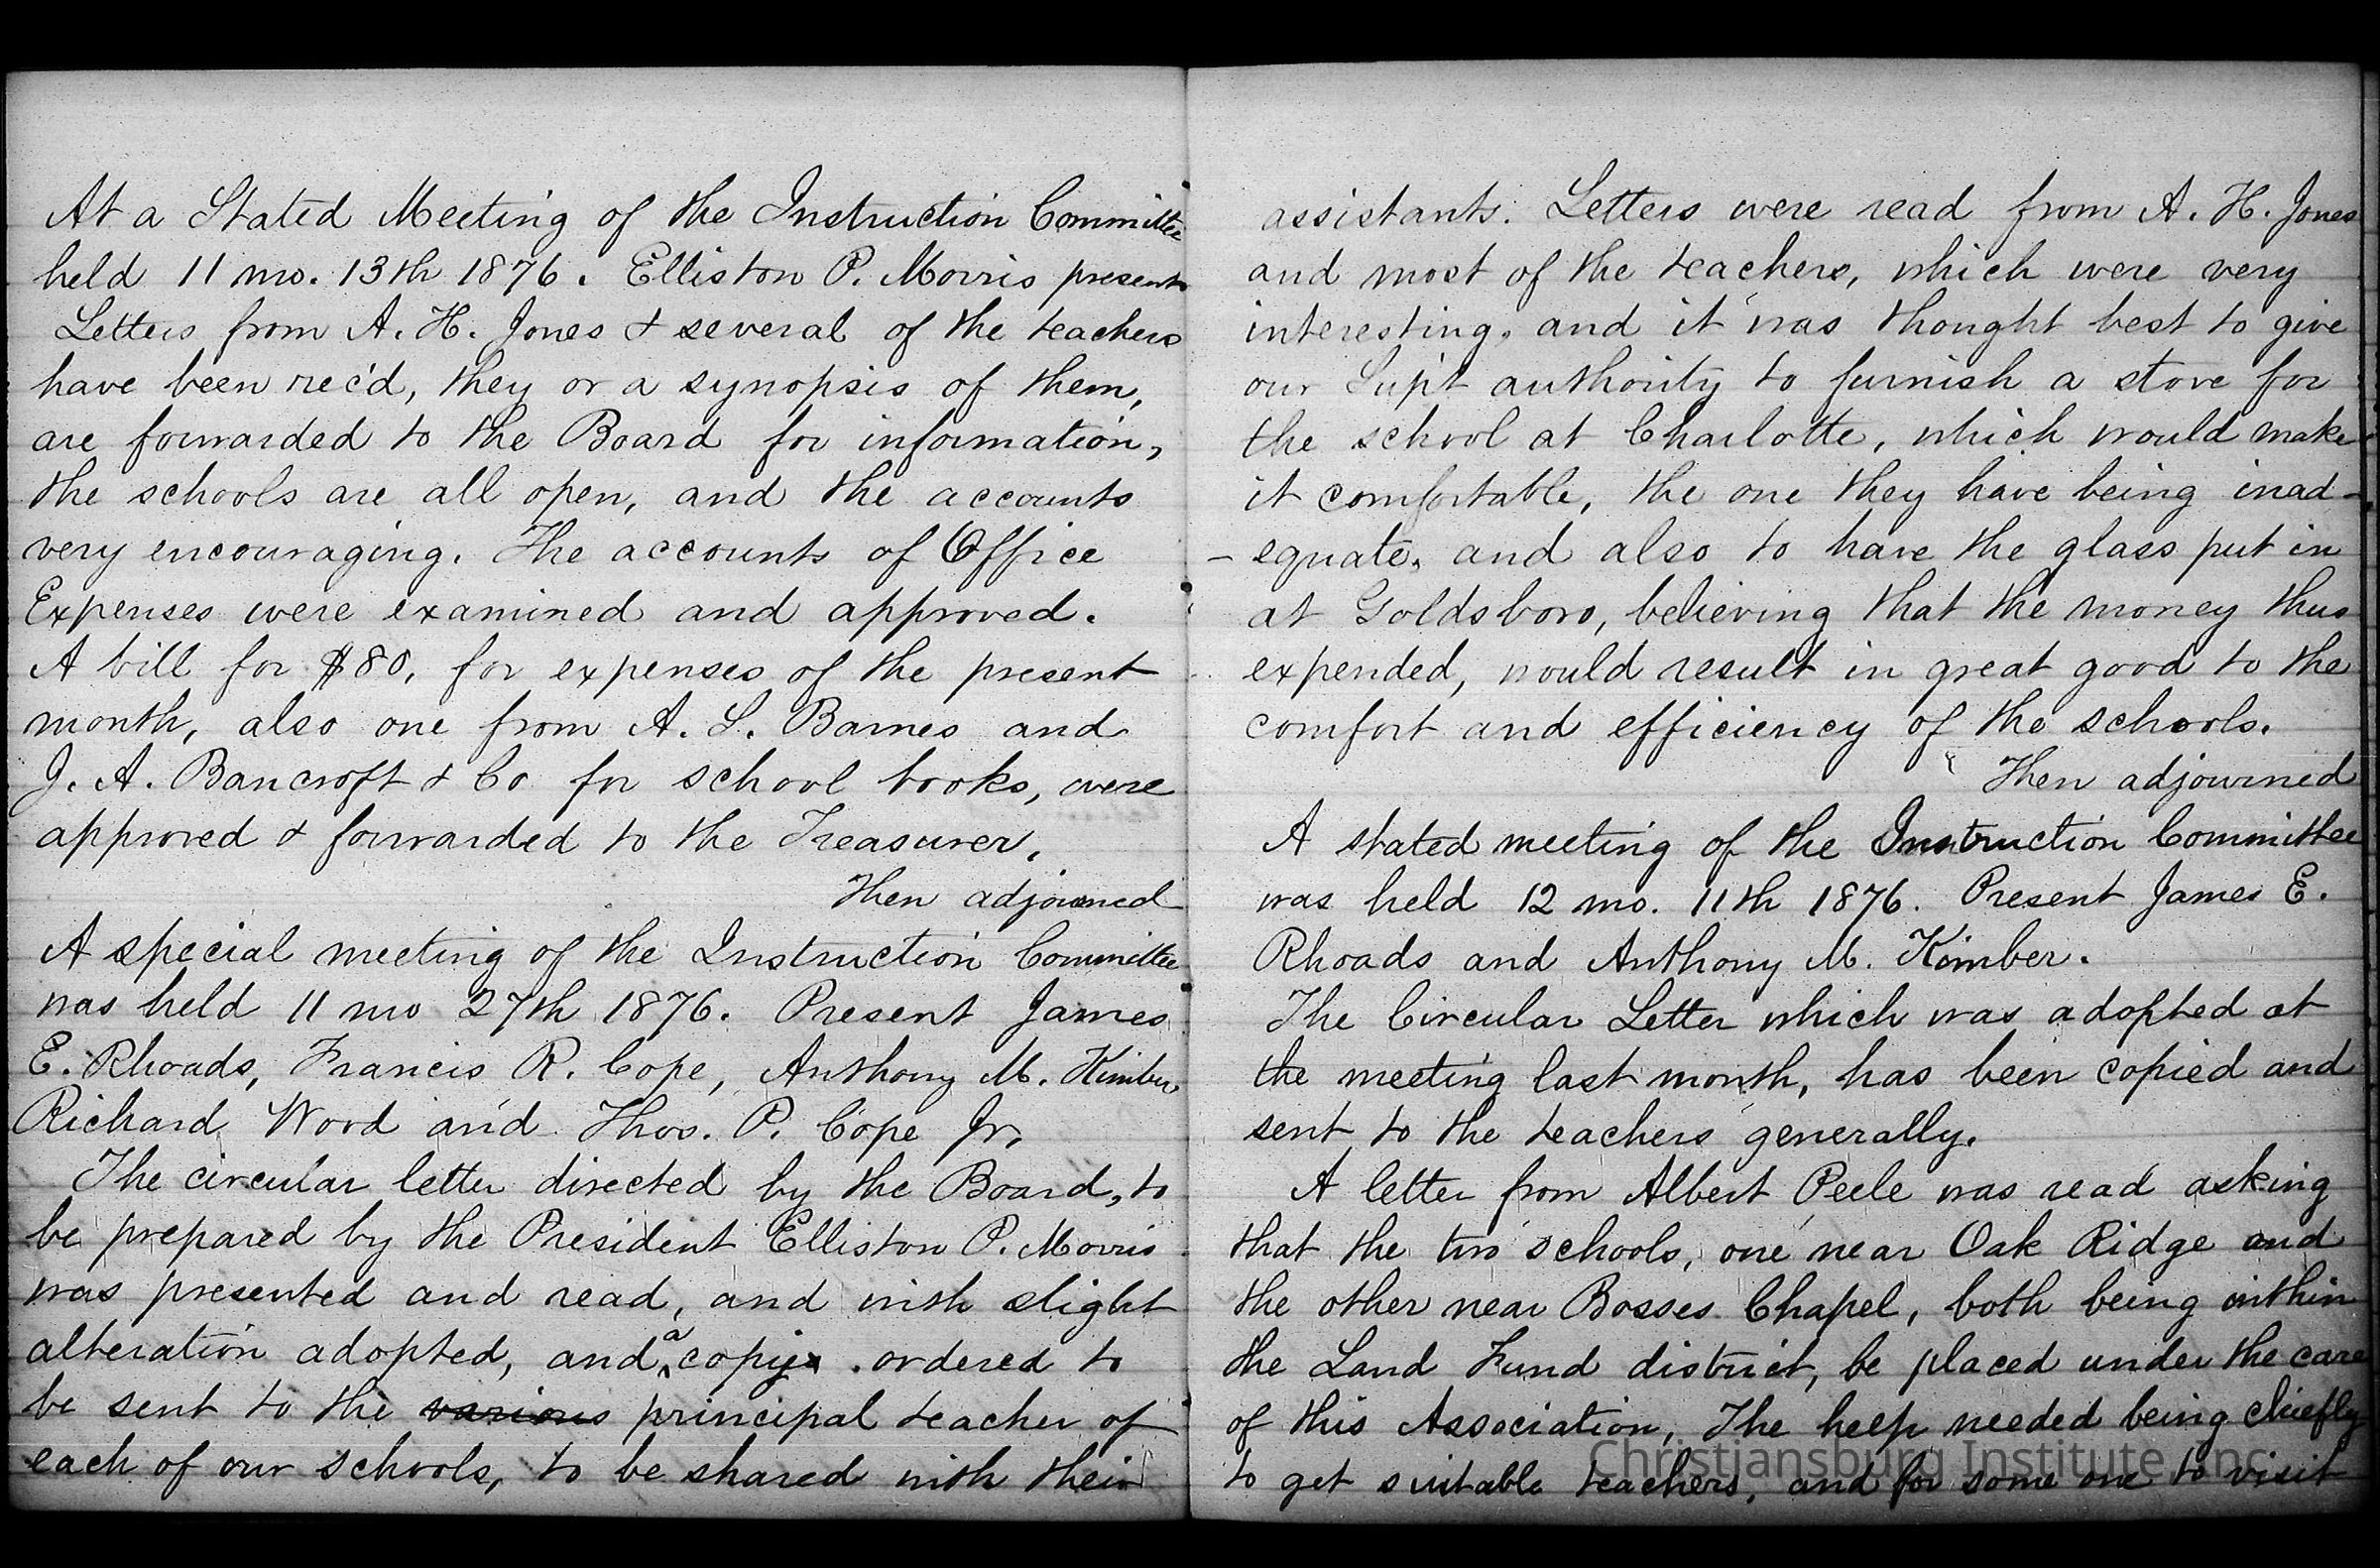 At a Stated Meeting of the Instruction Committee
held 11 mo. 13th 1876. Elliston P. Morris present
Letters from A. H. Jones & several of the teachers
have been rec'd, they or a synopsis of them,
are forwarded to the Board for information,
the schools are all open, and the accounts
very encouraging. The accounts of Office
Expenses were examined and approved.
A bill for $80, for expenses of the present
month, also one from A. S. Barnes and
J. A. Bancroft & Co for school books, were
approved & forwarded to the Treasurer.
Then adjourned
A special meeting of the Instruction Committee
was held 11 mo 27th 1876. Present James
E. Rhoads, Francis R. Cope, Anthony M. Kimber
Richard Wood and Thos. P. Cope Jr.
The circular letter directed by the Board, to
be prepared by the President Elliston P. Morris
was presented and read, and with slight
alteration adopted, and a copy ordered to
be sent to the various principal teacher of
each of our schools, to be shared with their
assistants. Letters were read from A. H. Jones
and most of the teachers, which were very
interesting, and it was thought best to give
our Sup't authority to furnish a stove for
the school at Charlotte, which would make
it comfortable, the one they have being inad-
-equate, and also to have the glass put in
at Goldsboro, believing that the money thus
expended, would result in great good to the
comfort and efficiency of the schools.
Then adjourned
A stated meeting of the Instruction Committee
was held 12 mo. 11th 1876. Present James E.
Rhoads and Anthony M. Kimber.
The Circular Letter which was adopted at
the meeting last month, has been copied and
sent to the teachers generally.
A letter from Albert Peele was read asking
that the two schools, one near Oak Ridge and
the other near Bosses Chapel, both being within
the Land Fund district, be placed under the care
of this Association, The help needed being chiefly
to get suitable teachers, and for some one to visit
Christiansburg Institute, Inc.